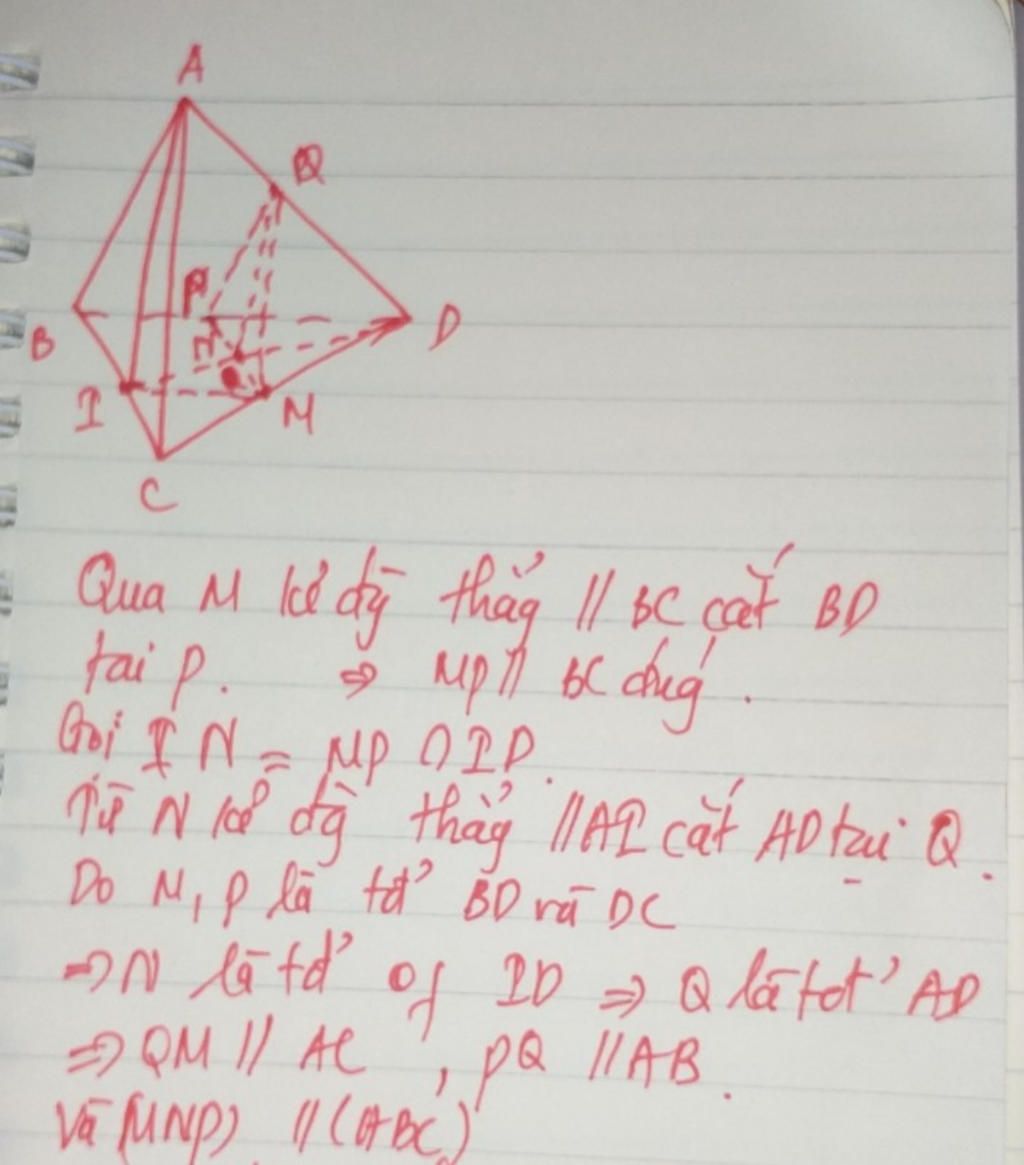 A
Q
P
N
B
D
I
M
C
Qua M kẻ đg̀ thẳg // BC cắt BD
tại P. => MP // BC đúg.
Gọi I N = MP ∩ ID.
Từ N kẻ đg̀ thẳg // AI cắt AD tại Q.
Do M, P là tđ' BD và DC
=> N là tđ' of ID => Q là tđ' AD
=> QM // AC, PQ // AB.
Và (MNP) // (ABC)